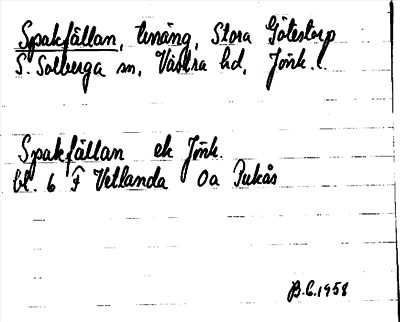 Spakfällan, terräng, Stora Götestorp
S. Solberga sn, Västra hd, Jönk.l.
Spakfällan ek Jönk.
bl. 6 F Vetlanda 0a Pukås
B.E.1958